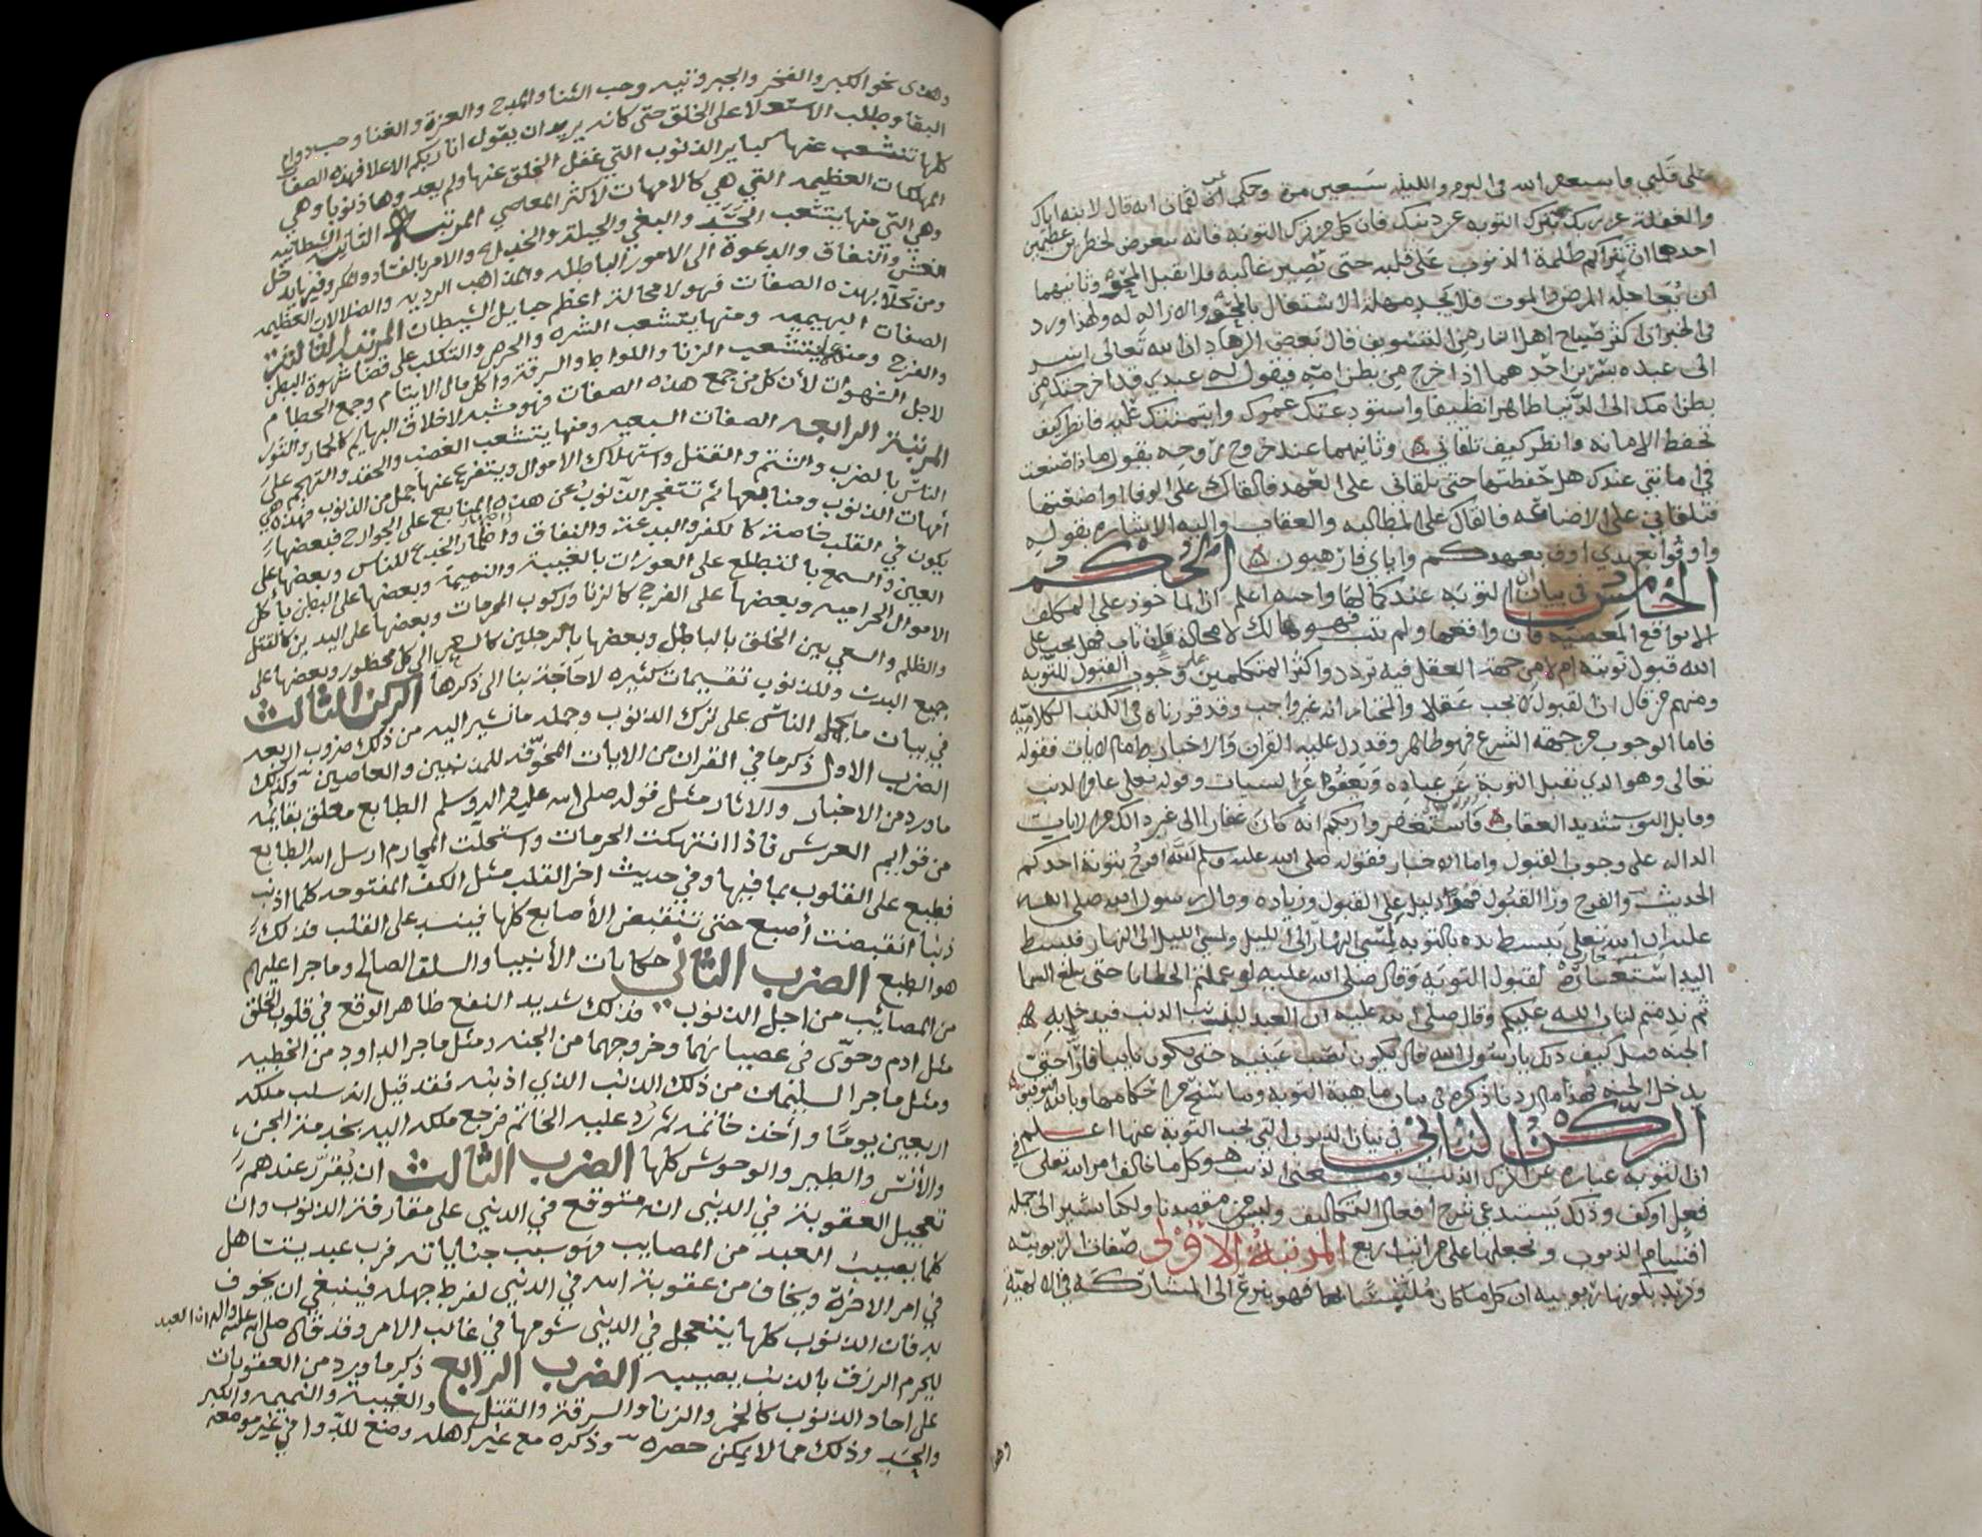 على قلبي وما يستغفر الله في اليوم والليلة سبعين مرة وحكي عن لقمان انه قال لابنه اياك
والغفلة عن ربك بترك التوبة عن ذنبك فان كل من ترك التوبة فانه يعرض لخطرين عظيمين
احدهما ان تتراكم ظلمة الذنوب على قلبه حتى تصير غالبه فلا تقبل المحو وثانيهما
ان يعاجله المرض والموت فلا يجد مهلة الاشتغال بالمحو والازاله له ولهذا ورد
في الخبر ان اكثر صياح اهل النار من التسويف قال بعض الزهاد ان الله تعالى اسر
الى عبده سرين احدهما اذا خرج من بطن امه فيقول له عبدي قد اخرجتك من
بطن امك الى الدنيا طاهرا نظيفا واستودعتك عمرك وايتمنتك عليه فانظر كيف
تحفظ الامانه وانظر كيف تلقاني وثانيهما عند خروج روحه يقول ماذا صنعت
في امانتي عندك هل حفظتها حتى تلقاني على العهد فالقاك على الوفا او اضعتها
فتلقاني على الاضاعه فالقاك على المطالبه والعقاب واليه الاشاره بقوله
واوفوا بعهدي اوف بعهدكم واياي فارهبون الحكم
الخامس في بيان ان التوبه عند كمالها واجبه اعلم ان الماخوذ على المكلف
الا يواقع المعصيه فان واقعها ولم يتب فهو هالك لا محالة فان تاب فهل يجب على
الله قبول توبته ام لا من جهة العقل فيه تردد واكثر المتكلمين على وجوب القبول للتوبه
ومنهم من قال ان القبول لا يجب عقلا والمختار انه غير واجب وقد قررناه في الكتب الكلاميه
فاما الوجوب من جهة الشرع فهو ظاهر وقد دل عليه القران والاخبار اما الايات فقوله
تعالى وهو الذي يقبل التوبة عن عباده ويعفوا عن السيات وقوله تعالى غافر الذنب
وقابل التوب شديد العقاب فاستغفروا ربكم انه كان غفارا الى غير ذلك من الايات
الداله على وجوب القبول واما الاخبار فقوله صلى الله عليه وسلم لله افرح بتوبة احدكم
الحديث والفرح ورا القبول فهو دليل على القبول وزياده وقال رسول الله صلى الله
عليه ان الله تعالى يبسط يده بالتوبه لمسي النهار الى الليل ولمسي الليل الى النهار فبسط
اليد استعاره لقبول التوبه وقال صلى الله عليه لو عملتم الخطايا حتى تبلغ السما
ثم ندمتم لتاب الله عليكم وقال صلى الله عليه ان العبد ليذنب الذنب فيدخل به
الجنه قيل كيف ذلك يا رسول الله قال يكون نصب عينيه حتى يكون تايبا فارا حتى
يدخل الجنه فهذا ما اردنا ذكره في بيان ماهية التوبه وما شرح من احكامها وبالله التوفيق
الركن الثاني في بيان الذنوب التي يجب التوبة عنها اعلم
ان التوبه عباره عن ترك الذنب ومعنى الذنب هو كل ما خالف امر الله تعالى في
فعل او كف وذلك يستدعي شرح افعال التكاليف وليس من مقصدنا ولكنا نشير الى جمله
اقسام الذنوب ونجعلها على مراتب اربع المرتبة الاولى صفات الربوبيه
ونريد بكونها ربوبيه ان كل ما كان متلبسا بها فهو ينزع الى المشاركه في الالهيه
وهذا
وهذى نحو الكبر والفخر والجبروتيه وحب الثنا والمدح والعزة والغنا وحب دوام
البقا وطلب الاستعلا على الخلق حتى كانه يريد ان يقول انا ربكم الاعلا فهذه الصفا
كلها تنشعب عنها كباير الذنوب التي غفل الخلق عنها ولم يعدوها ذنوبا وهي
المهلكات العظيمه التي هي كالامهات لاكثر المعاصي المرتبة الثانيه الشيطانيه
وهي التي منها يتشعب الحسد والبغي والحيلة والخديعه والامر بالفساد والمكر وفيه يدخل
الغش والنفاق والدعوة الى الامور الباطله والمذاهب الرديه والضلالات العظيمه
ومن تحلا بهذه الصفات فهو لا محالة اعظم حبايل الشيطان المرتبة الثالثة
الصفات البهيميه ومنها يتشعب الشره والحرص والتكلب على قضا شهوة البطن
والفرج ومنها يتشعب الزنا واللواط والسرقة واكل مال الايتام وجمع الحطام
لاجل الشهوات لأن كل من جمع هذه الصفات فهو مشبه لاخلاق البهايم كالحمار والثور
المرتبة الرابعه الصفات السبعيه ومنها يتشعب الغضب والحقد والتهجم على
الناس بالضرب والشتم والقتل واستهلاك الاموال ويتفرع عنها جمل من الذنوب فهذه هي
أمهات الذنوب ومنابعها ثم تتفجر الذنوب عن هذه المنابع على الجوارح فبعضها
يكون في القلب خاصة كالكفر والبدعة والنفاق واضمار الخدع للناس وبعضها على
العين والسمع بالتطلع على العورات بالغيبة والنميمة وبعضها على البطن بأكل
الاموال الحراميه وبعضها على الفرج كالزنا وركوب المحرمات وبعضها على اليدين كالقتل
والظلم والسعي بين الخلق بالباطل وبعضها بالرجلين كالسعي الى كل محظور وبعضها على
جميع البدن وللذنوب تقسيمات كثيره لا حاجة بنا الى ذكرها الركن الثالث
في بيان ما يحمل الناس على ترك الذنوب وجمله ما نشير اليه من ذلك ضروب اربعه
الضرب الاول ذكر ما في القران من الايات المخوفه للمذنبين والعاصين وكذلك
ما ورد من الاخبار والاثار مثل قوله صلى الله عليه واله وسلم الطابع معلق بقايمه
من قوايم العرش فاذا انتهكت الحرمات واستحلت المحارم ارسل الله الطابع
فطبع على القلوب بما فيها وفي حديث اخر القلب مثل الكف المفتوحه كلما اذنب
ذنبا انقبضت أصبع حتى تنقبض الأصابع كلها فينسد على القلب فذلك
هو الطبع الضرب الثاني حكايات الأنبيا والسلف الصالح وما جرا عليهم
من المصائب من اجل الذنوب فذلك شديد النفع ظاهر الوقع في قلوب الخلق
مثل ادم وحوى في عصيانهما وخروجهما من الجنه ومثل ما جرا لداود من الخطيه
ومثل ما جرا لسليمان من ذلك الذنب الذي اذنبه فقد قيل انه سلب ملكه
اربعين يوما وأخذ خاتمه ثم رد عليه الخاتم فرجع ملكه اليه بخدمة الجن
والأنس والطير والوحوش كلها الضرب الثالث ان يقرر عندهم
تعجيل العقوبة في الدنيى انه متوقع في الدنيى على مقارفة الذنوب وان
كلما يصيب العبد من المصايب فهو سبب جناياته فرب عبد يتساهل
في امر الاخرة ويخاف من عقوبة الله في الدنيى لفرط جهله فينبغي ان يخوف
به فان الذنوب كلها يتعجل في الدنيى شومها في غالب الامر وقد قال صلى الله عليه واله ان العبد
ليحرم الرزق بالذنب يصيبه الضرب الرابع ذكر ما ورد من العقوبات
على احاد الذنوب كالخمر والزنا والسرقة والقتل والغيبة والنميمه والكبر
والحسد وذلك مما لا يمكن حصره وذكره مع غير اهله وضع للدوا في غير موضعه